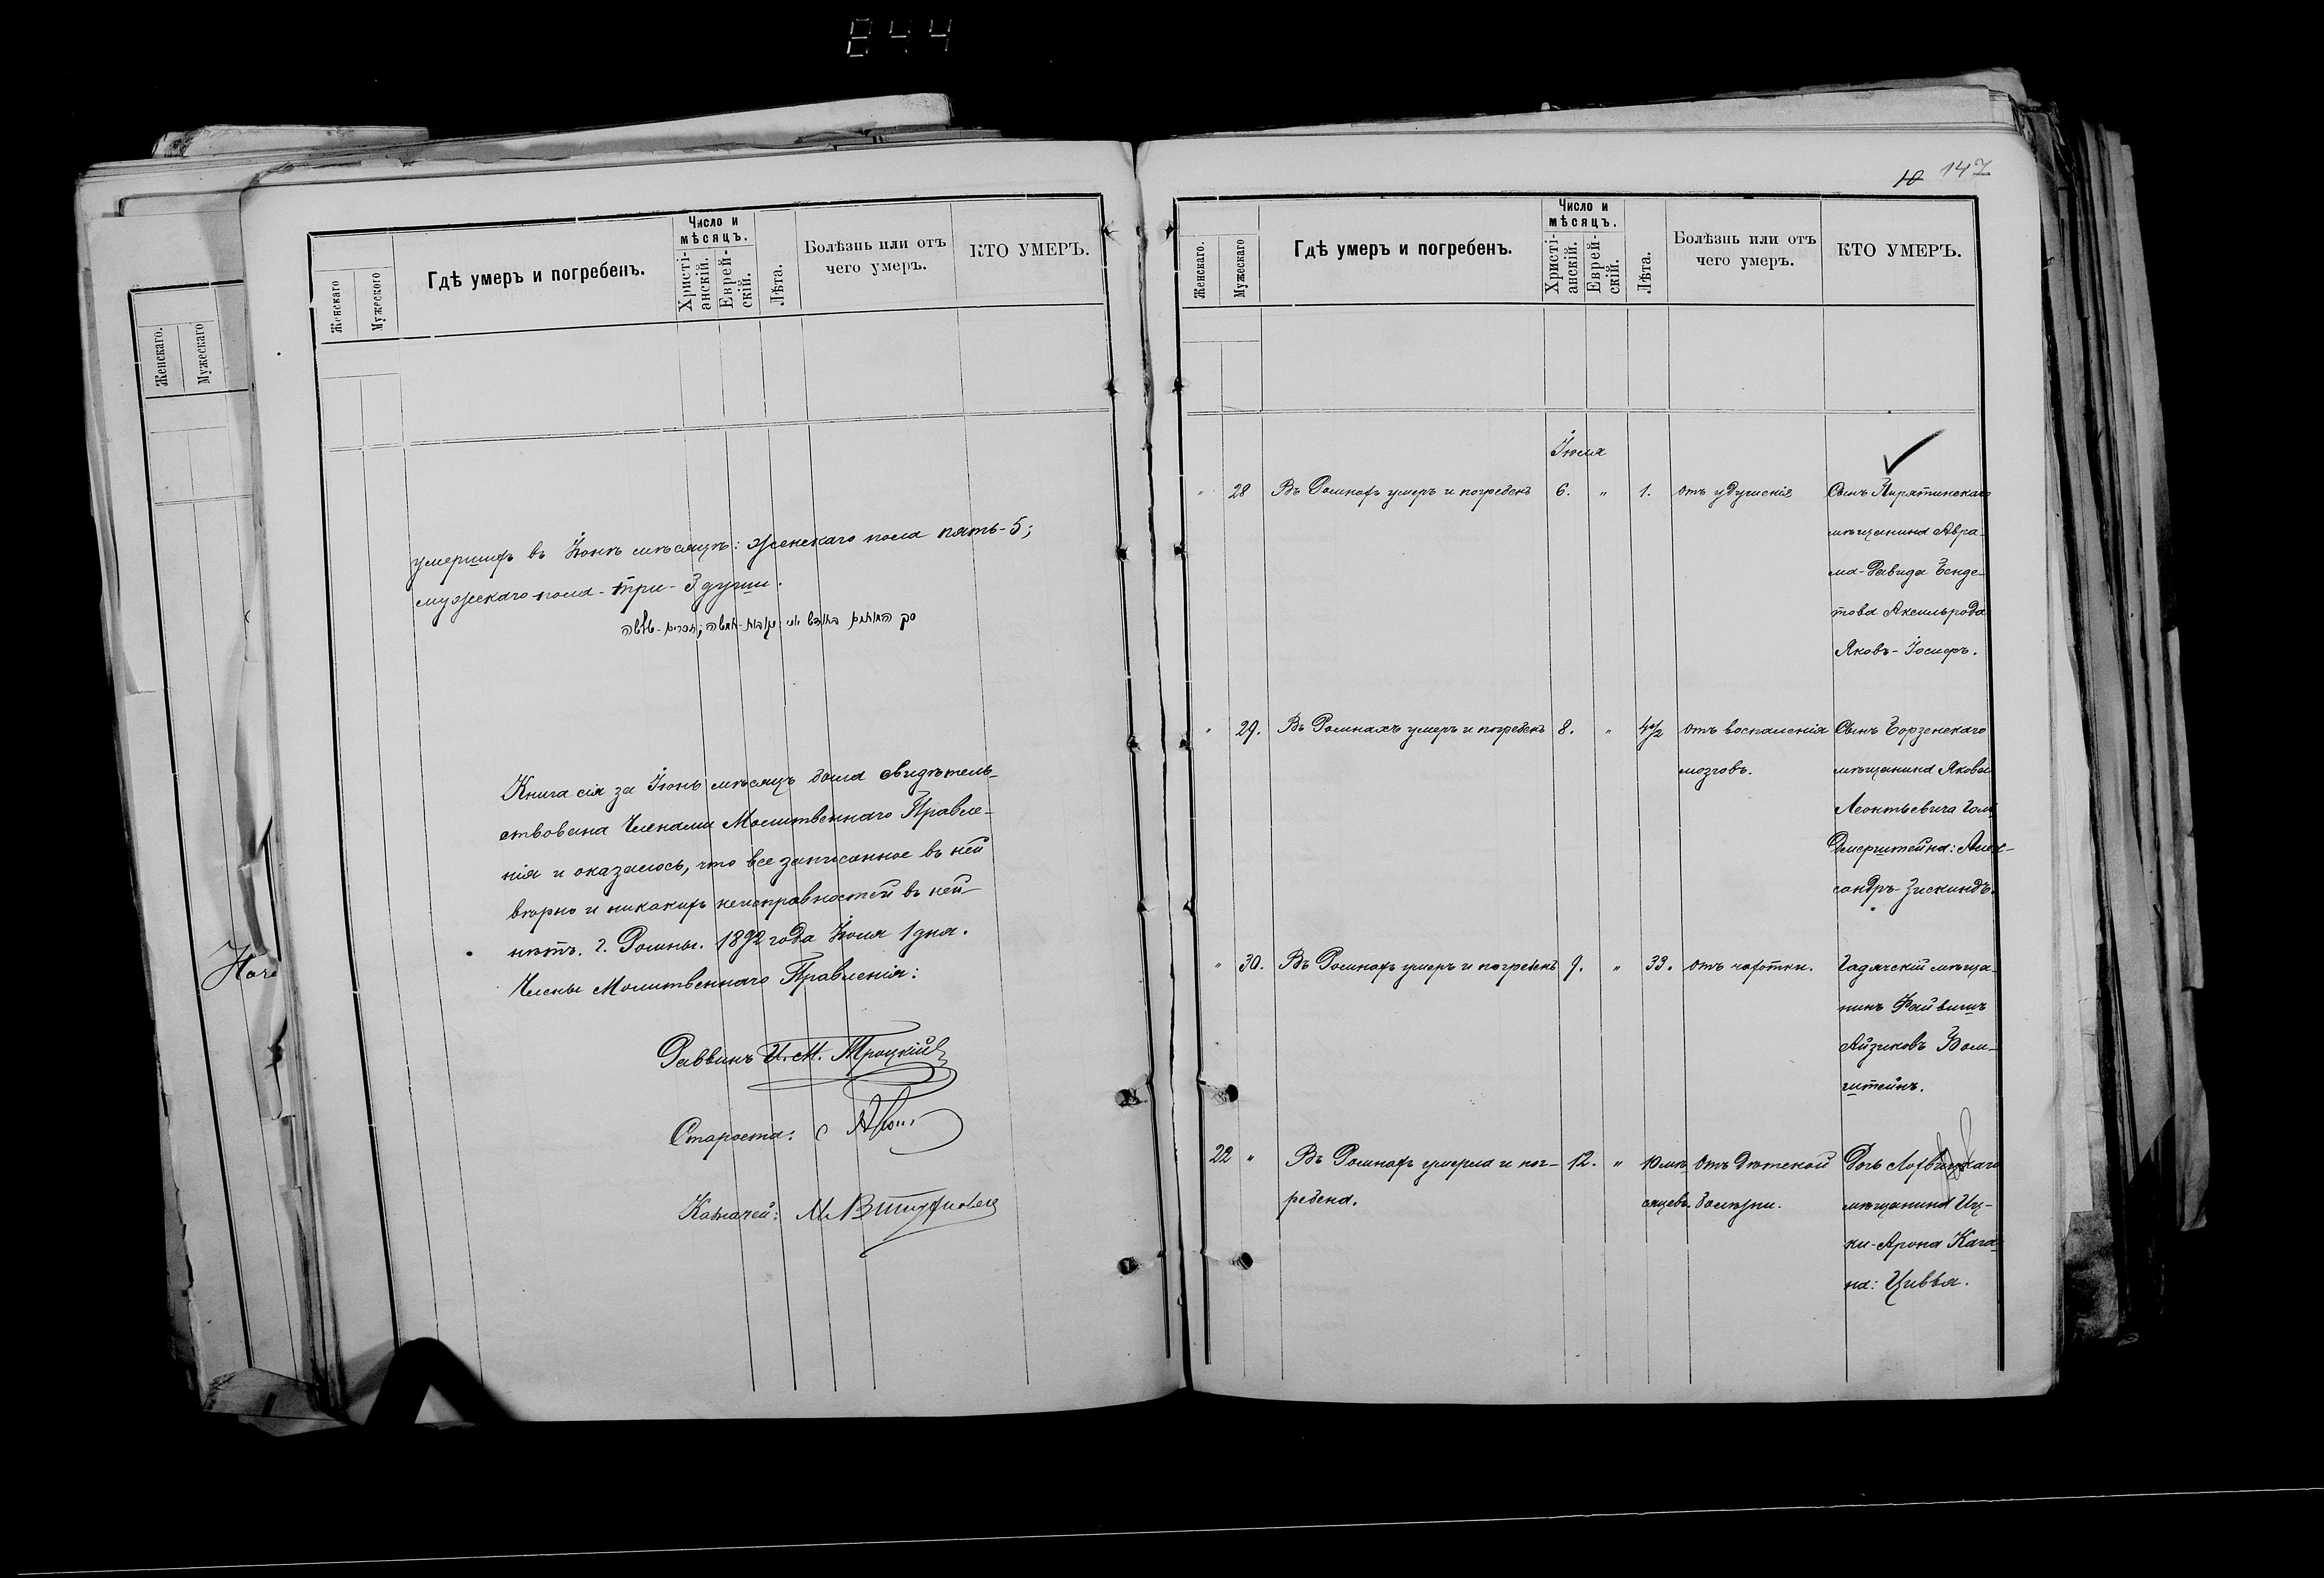 844
Женскаго.
Мужескаго
Женскаго
Мужеского
Гдѣ умеръ и погребенъ.
Число и
мѣсяцъ.
Христі-
анскій.
Еврей-
скій.
Лѣта.
Болѣзнь или отъ
чего умеръ.
КТО УМЕРЪ.
умершихъ въ Іюнѣ мѣсяцѣ: женскаго пола пять-5;
мужескаго пола-три-3 души.
Книга сія за Іюнь мѣсяцъ была свидѣтель-
ствована Членами Молитвеннаго Правле-
нія и оказалось, что все записанное въ ней
вѣрно и никакихъ неисправностей въ ней
нѣтъ. г. Ромны. 1892 года Іюля 1 дня.
Члены Молитвеннаго Правленія:
Раввинъ И. М. Троцкій
Староста:
Казначей: М.
10 147
Женскаго.
Мужескаго
Гдѣ умеръ и погребенъ.
Число и
мѣсяцъ.
Христі-
анскій.
Еврей-
скій.
Лѣта.
Болѣзнь или отъ
чего умеръ.
КТО УМЕРЪ.
Іюля
" 28 Въ Ромнахъ умеръ и погребенъ 6. " 1. отъ удушенія Сынъ Пирятинскаго
мѣщанина Авра-
ма-Давида Бенде-
това Аксельрода
Яковъ-Іосифъ.
" 29. Въ Ромнахъ умеръ и погребенъ 8. " 4 1/2 отъ воспаленія Сынъ Борзенскаго
мозговъ. мѣщанина Якова
Леонтьевича Голь
дмерштейна: Алек-
сандръ-Зискиндъ.
" 30. Въ Ромнахъ умеръ и погребенъ 9. " 33. отъ чахотки. Гадячскій мѣща-
нинъ Файвишъ
Айзиковъ Вол-
штейнъ.
22 " Въ Ромнахъ умерла и пог- 12. " 10 мѣ отъ дѣтской Дочь Лохвицкаго
ребена. сяцевъ. болѣзни. мѣщанина Иц-
ки-Арона Кага-
на: Цивья.